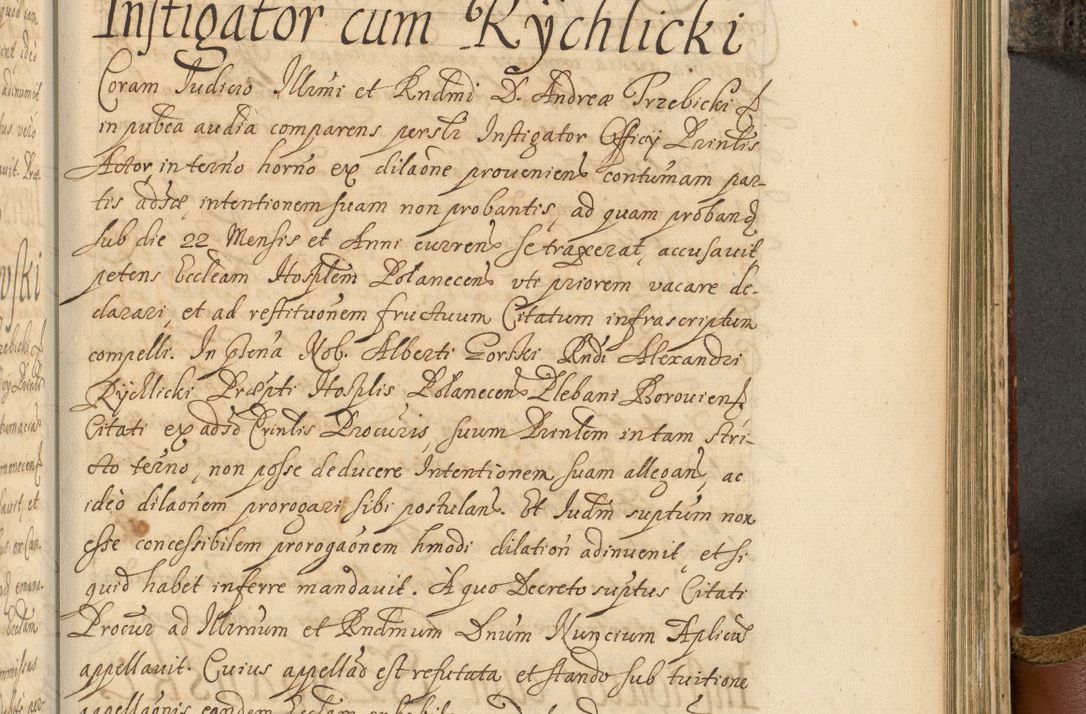 Instigator cum Rÿchlicki
Coram Judicio Illrmi et Rndmi D. Andreæ Trzebicki
in pubca audia comparens persır Instigator Officÿ Printis
Actor in terno horno ex dilaone proueniens contumam par-
tis adsæ, intentionem suam non probantis, ad quam proband
sub die 22 Mensis et Anni currens se traxerat, accusauit
petens Eccleam Hosplem Polanecens uti priorem vacare de-
clarari, et ad restituonem fructuum Citatum infrascriptum
compelli. In pſena Nob. Alberti Gorski Rndi Alexandri
Rÿchlicki Præpti Hosplis Polanecens Plebani Borouien
Citati ex adsd Printis Procuris, suum Printem in tam stri-
cto terno, non posse deducere Intentionem suam allegans, ac
ideò dilaonem prorogari sibi postulans. Et Judm suptum non
esse concessibilem prorogaonem hmodi dilation adinuenit, et si
quid habet inferre mandauit. A quo Decreto suptus Citati
Procur ad Illrmum et Rndmum Dnum Nuncium Aplicu
appellauit. Cuius appellao est refutata et stando sub tuitione
appellaonis eandem Eccleam